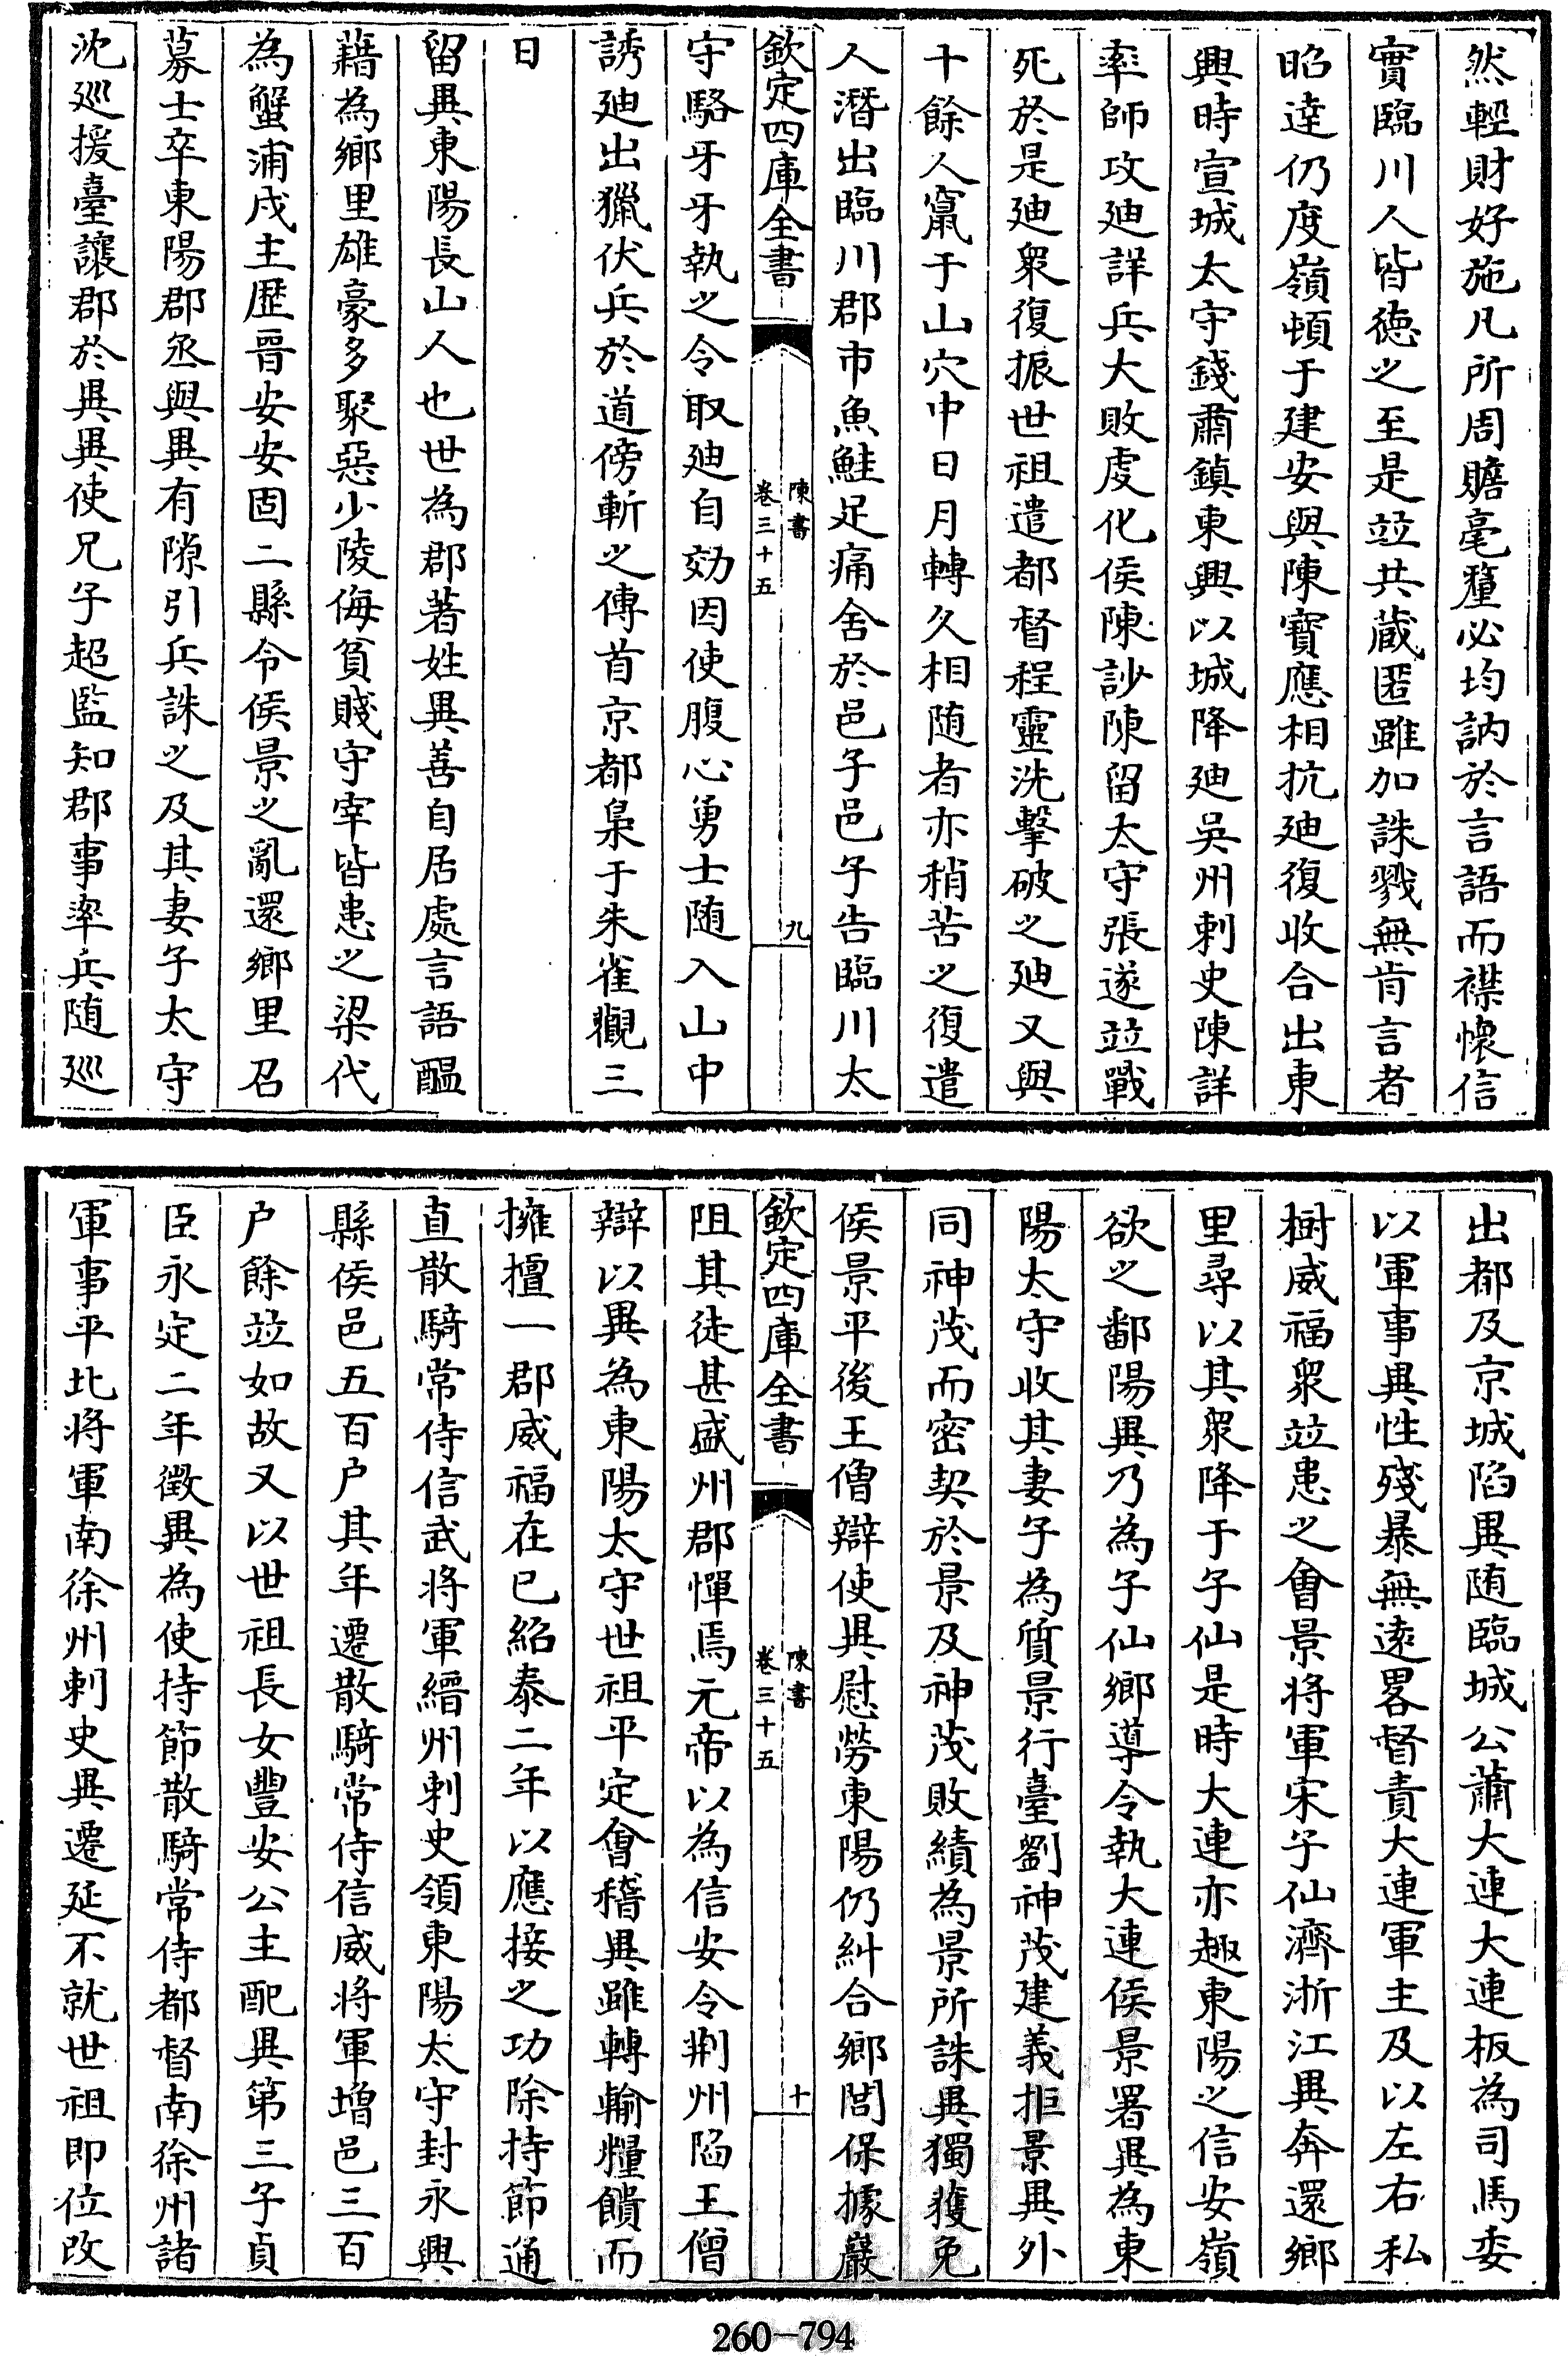 然輕財好施凡所周贍毫釐必均訥於言語而襟懐信
實臨川人皆徳之至是竝共蔵匿雖加誅戮無肯言者
昭達仍度嶺頓于建安與陳寳應相抗廸復收合出東
興時宣城太守錢肅鎮東興以城降廸吳州刺史陳詳
率師攻廸詳兵大敗䖍化侯陳訬陳留太守張遂竝戰
死於是廸衆復振世祖遣都督程靈洗擊破之廸又與
十餘人竄于山穴中日月轉久相随者亦稍苦之復遣
人潛出臨川郡市魚鮭足痛舍於邑子邑子告臨川太
欽定四庫全書
陳書
卷三十五
九
守駱牙牙執之令取廸自効因使腹心勇士随入山中
誘廸出獵伏兵於道傍斬之傳首京都梟于朱雀觀三
日
留異東陽長山人也世為郡著姓異善自居處言語醖
藉為鄉里雄豪多聚惡少陵侮貧賤守宰皆患之梁代
為蟹浦戍主歴晉安安固二縣令侯景之亂還鄉里召
募士卒東陽郡丞與異有隙引兵誅之及其妻子太守
沈巡援臺讓郡於異異使兄子超監知郡事率兵随巡
出都及京城陷異随臨城公蕭大連大連板為司馬委
以軍事異性殘暴無逺畧督責大連軍主及以左右私
樹威福衆竝患之會景将軍宋子仙濟浙江異奔還鄉
里尋以其衆降于子仙是時大連亦趣東陽之信安嶺
欲之鄱陽異乃為子仙鄉導令執大連侯景署異為東
陽太守收其妻子為質景行臺劉神茂建義拒景異外
同神茂而密契於景及神茂敗績為景所誅異獨獲免
侯景平後王僧辯使異慰勞東陽仍糾合鄉閭保據巖
欽定四庫全書
陳書
卷三十五
十
阻其徒甚盛州郡憚焉元帝以為信安令荆州陷王僧
辯以異為東陽太守世祖平定會稽異雖轉輸糧饋而
擁擅一郡威福在已紹泰二年以應接之功除持節通
直散騎常侍信武将軍縉州刺史領東陽太守封永興
縣侯邑五百户其年遷散騎常侍信威将軍增邑三百
户餘竝如故又以世祖長女豐安公主配異第三子貞
臣永定二年徵異為使持節散騎常侍都督南徐州諸
軍事平北将軍南徐州刺史異遷延不就世祖即位改
260-794